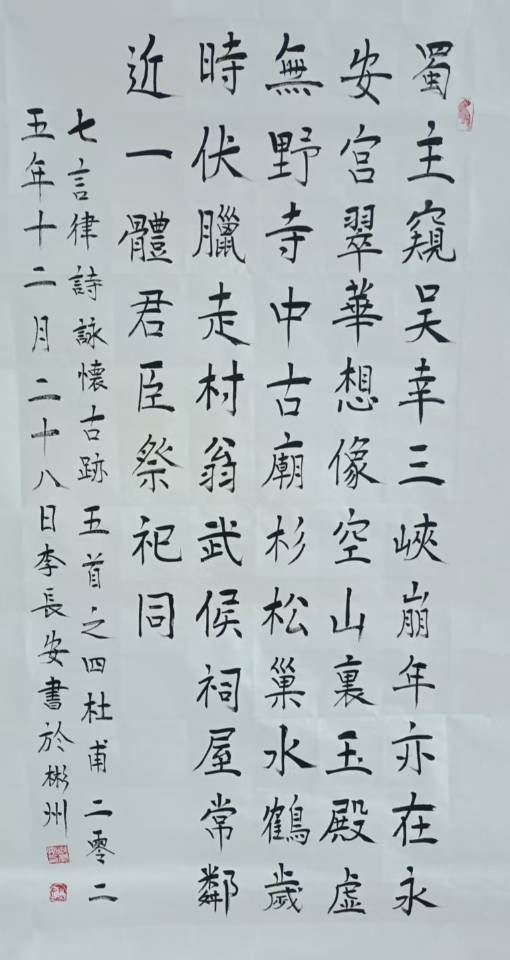 蜀主窺吴幸三峽崩年亦在永
安宫翠華想像空山裏玉殿虚
無野寺中古廟杉松巢水鶴歲
時伏臘走村翁武侯祠屋常鄰
近一體君臣祭祀同
七言律詩詠懷古跡五首之四杜甫二零二
五年十二月二十八日李長安書於彬州